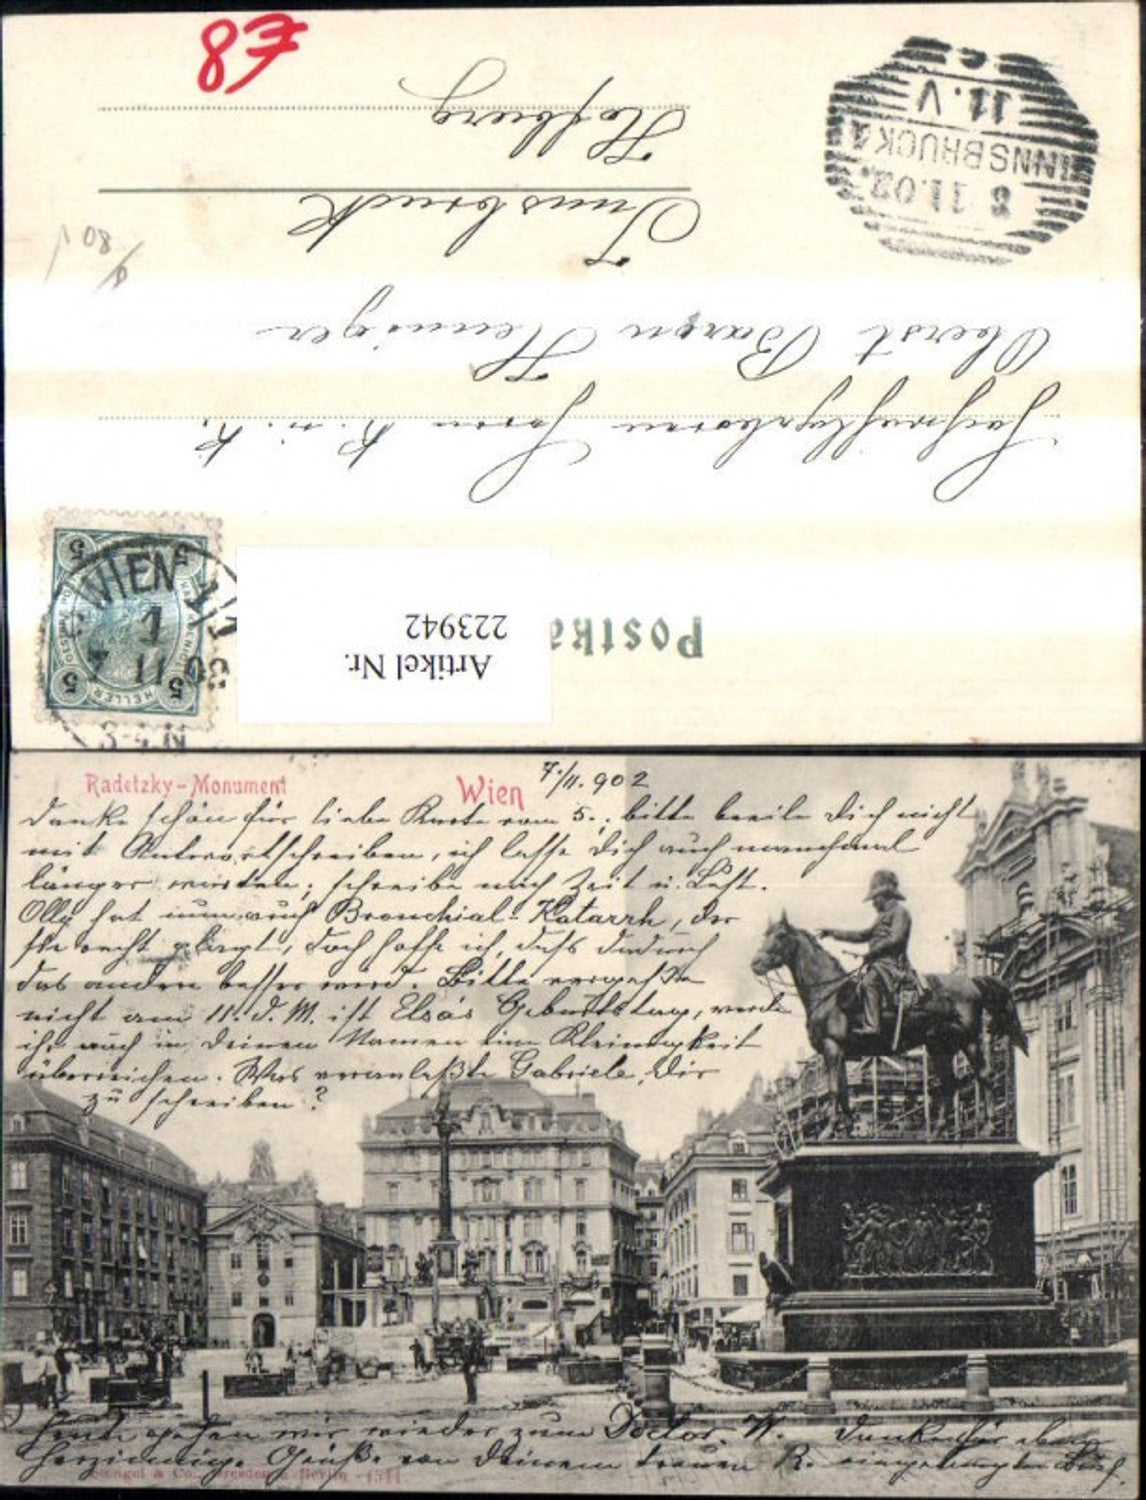 8€
Hofburg
Innsbruck
Oberst Baron Henniger
Hochwohlgeboren Herrn k. u. k.
INNSBRUCK 1
8 11.02.
11. V
WIEN 1/1
7 11 02
5 5
5 5
HELLER
Artikel Nr.
223942
Postka
Radetzky-Monument
Wien
7./11. 902
Danke schön für liebe Karte vom 5., bitte beeile Dich nicht
mit Antwortschreiben, ich lasse Dich auch manchmal
länger warten; schreibe nach Zeit u. Lust.
Olly hat nun auch Bronchial-Katarrh, der
sie recht plagt, doch hoffe ich, dass dadurch
das andere besser wird. Bitte vergesse
nicht am 11. d. M. ist Elsa's Geburtstag, werde
ihr auch in Deinem Namen eine Kleinigkeit
überreichen. Was veranlaßte Gabriele, Dir
zu schreiben?
Heute gehen wir wieder zum Doctor W. Danke für
herzinnige Grüße von Deinem treuen R.
Stengel & Co., Dresden u. Berlin